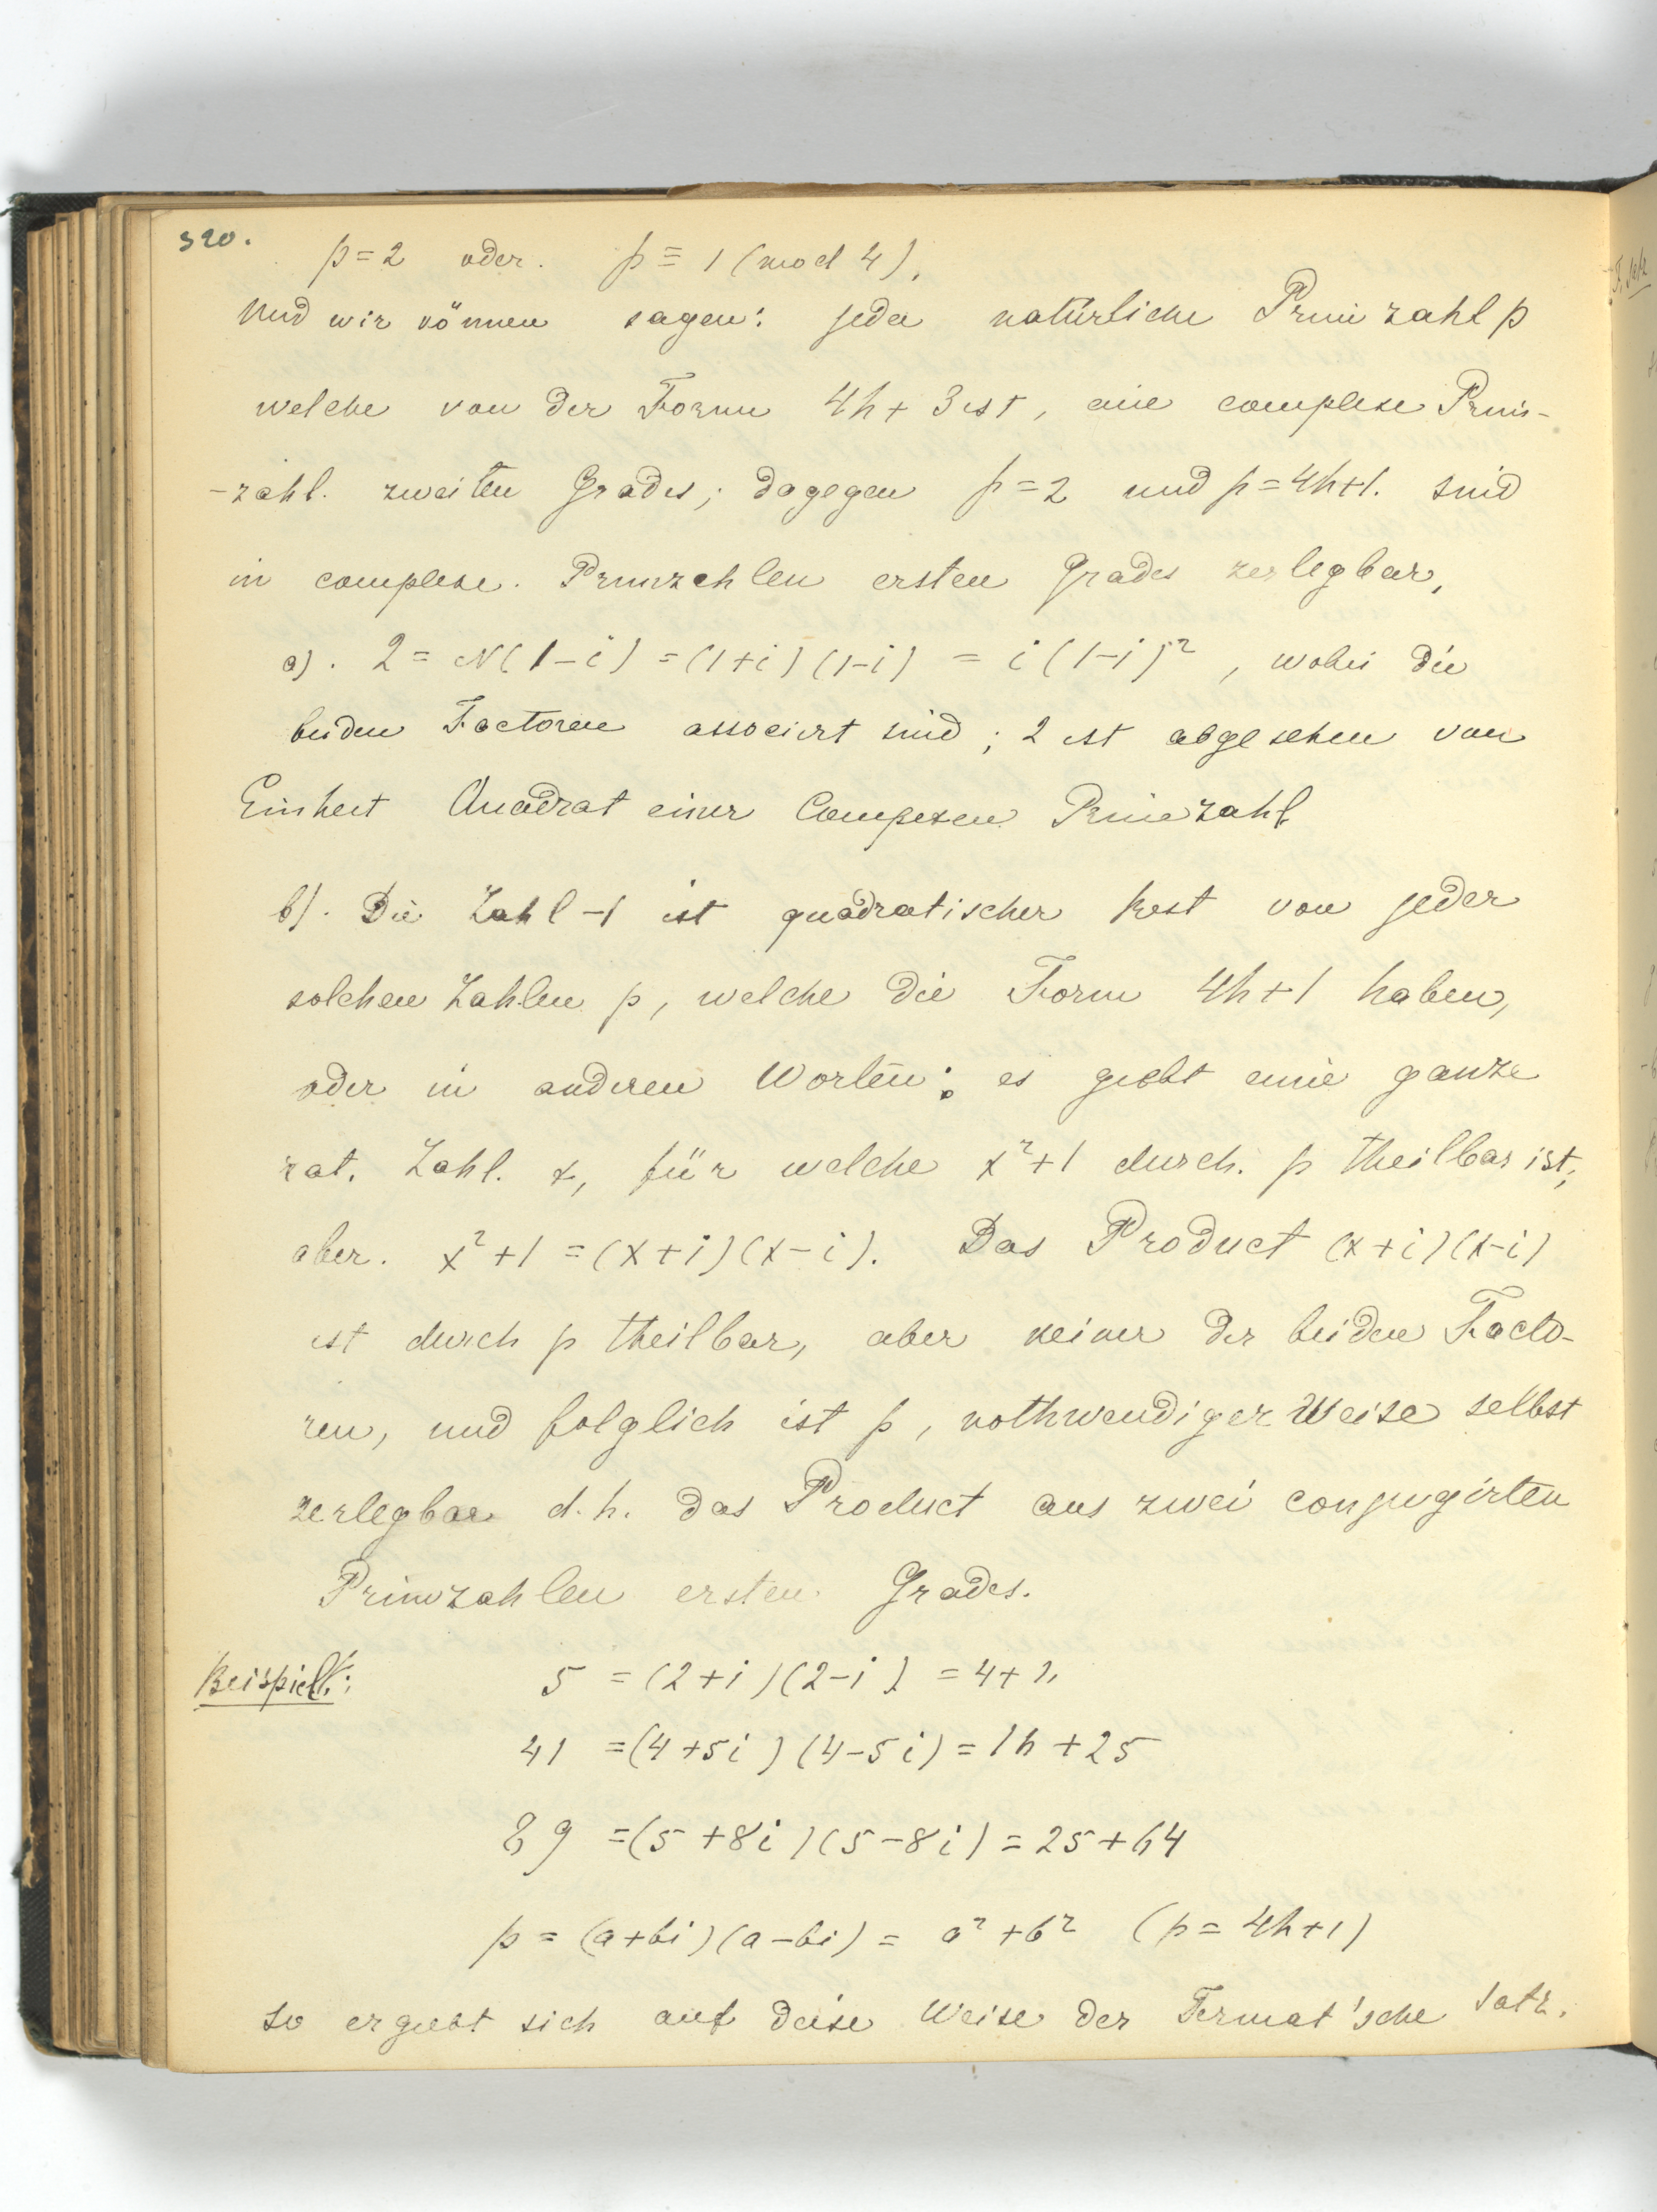 320.
p = 2 oder. p ≡ 1 (mod 4),
Und wir können sagen: jede natürliche Primzahl p
welche von der Form 4h + 3 ist, eine complexe Prim-
-zahl. zweiten Grades; dagegen p = 2 und p = 4h+1. sind
in complexe. Primzahlen ersten Grades zerlegbar,
a). 2 = N(1-i) = (1+i)(1-i) = i(1-i)², wobei die
beiden Factoren associirt sind; 2 ist abgesehen von
Einheit Quadrat einer Compexen Primzahl
b). Die Zahl -1 ist quadratischer Rest von jeder
solchen Zahlen p, welche die Form 4h+1 haben,
oder in anderen Worten: es giebt eine ganze
rat. Zahl. x, für welche x²+1 durch. p theilbar ist;
aber. x²+1 = (x+i)(x-i). Das Product (x+i)(x-i)
ist durch p theilbar, aber keiner der beiden Facto-
ren, und folglich ist p, nothwendiger Weise selbst
zerlegbar d.h. das Product aus zwei conjugirten
Primzahlen ersten Grades.
Beispiel: 5 = (2+i)(2-i) = 4+1,
41 = (4+5i)(4-5i) = 16+25
89 = (5+8i)(5-8i) = 25+64
p = (a+bi)(a-bi) = a²+b² (p = 4h+1)
so ergiebt sich auf deise Weise der Fermat'sche Satz.